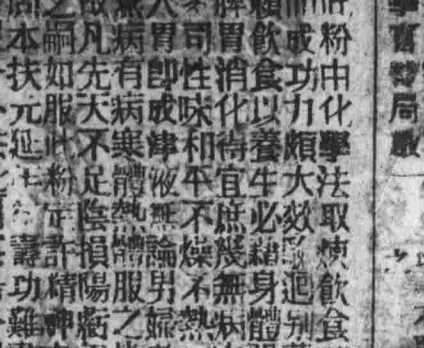 發局
粉由化學法取煉飲食
而成功力頗大效驗迥别
賴飲食以養生必藉身體
脾胃消化得宜庶幾無病
司性味和平不燥不熱
人胃卽成津液無論男婦
無病有病寒體熱體服之
凡先天不足陰損陽虧
之嗣如服此粉定許精神
本扶元延年壽功難